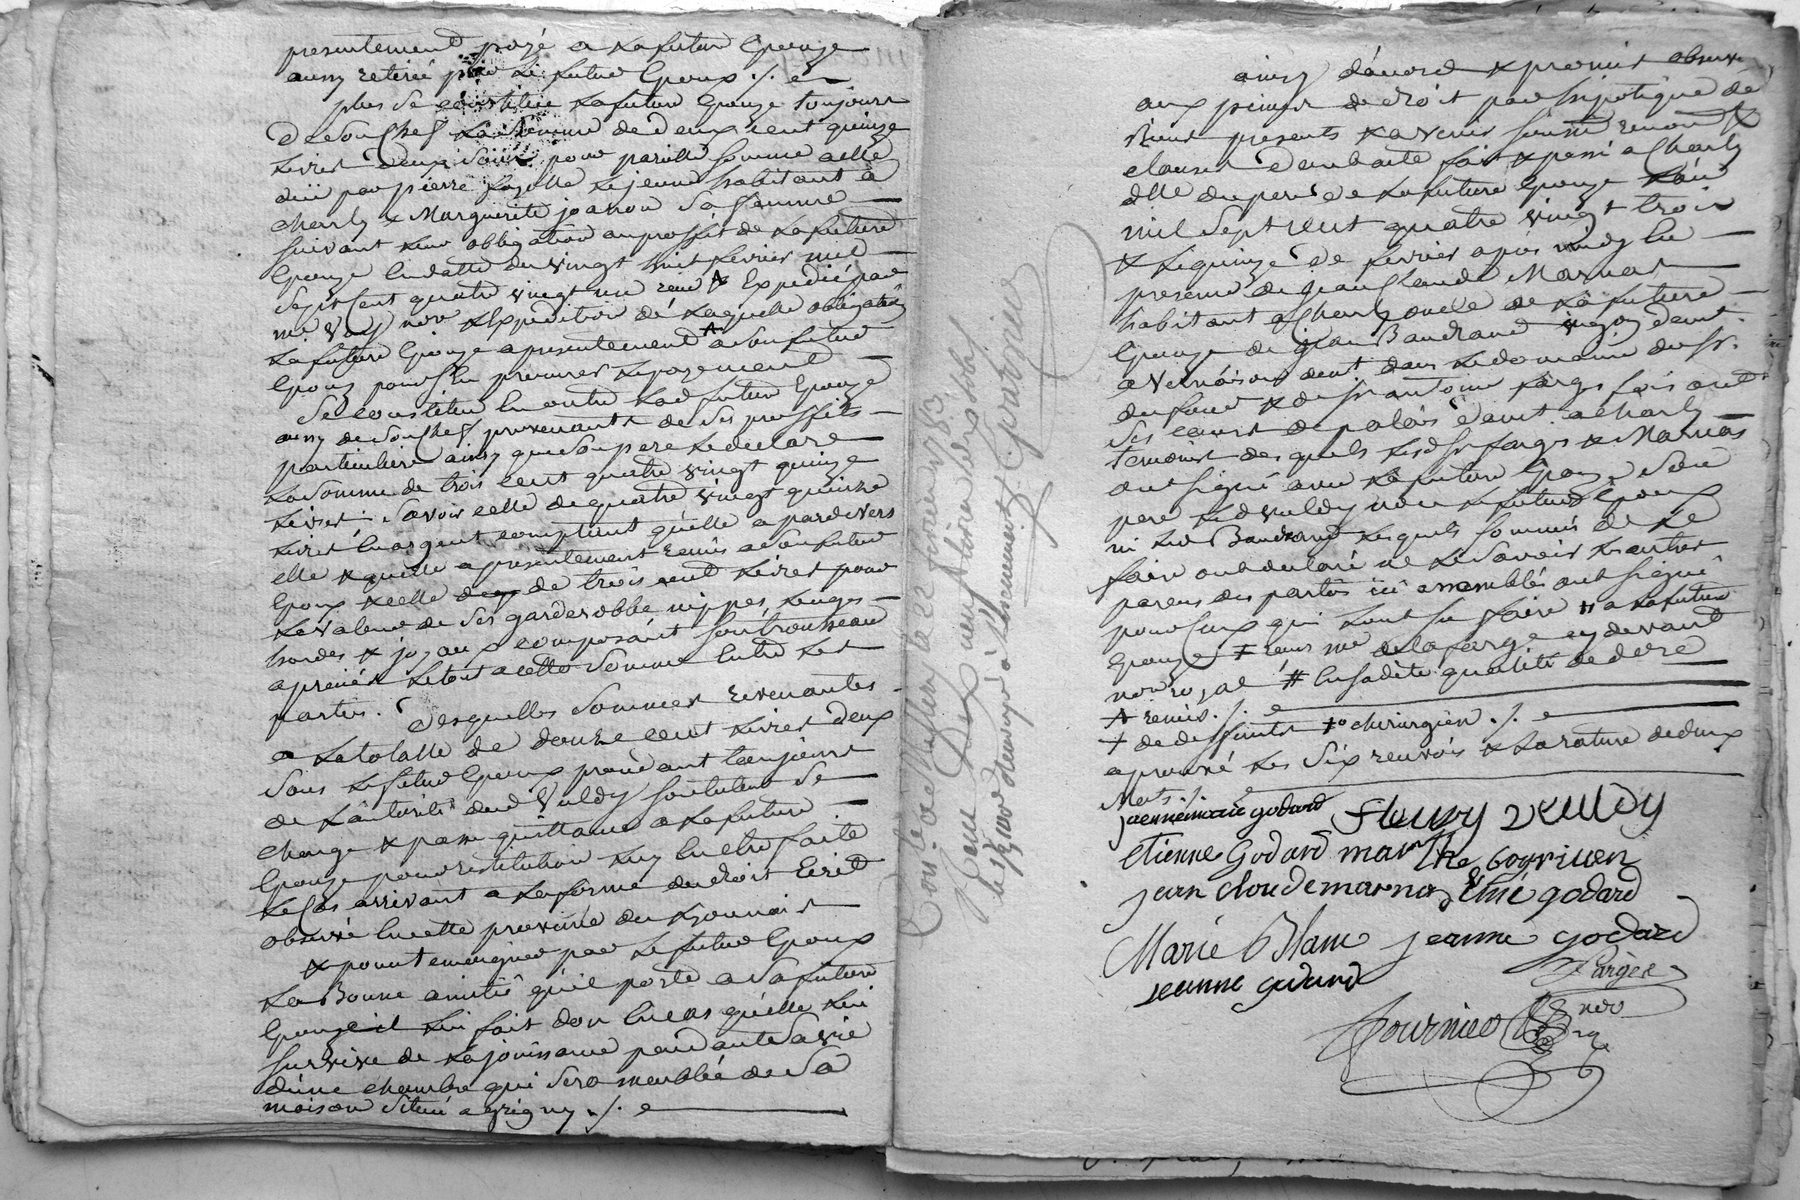 presentement payé a la future Epouze
aussy retirée par le futur Epoux ./.
plus se constitue la future Epouze toujours
de son Chef la somme de deux cent quinze
livres deux sous pour pareille somme a elle
düe par pierre fayolle le jeune habitant a
charly & Marguerite joanon Sa femme
suivant leur obligation au proffit de la future
Epouze en datte du vingt huit fevrier mil
Sept Cent quatre vingt un recu & Expedié par
me no.re Expedition de laquelle obligation
la future Epouze a presentement a son futur
Epoux pour s'en procurer le payement
Se constitue En outre la d future Epouze
aussy de son Chef provenante de ses proffits
particuliers ainsy que son pere le declare
la somme de trois cent quatre vingt quinze
livres savoir celle de quatre vingt quinze
livres en argent comptant qu'elle a pardevers
elle & quelle a presentement remis a son futur
Epoux & celle de trois cent livres pour
la valeur de ses garderobbe nippes linges
hardes & joyaux composant son trousseau
apretié le tout a cette somme Entre les
parties.
Desquelles sommes revenantes
a la totalle de douze cent livres deux
sous le futur Epoux procedant toujours
de l'autorité dud Vuldy son tuteur se
charge & passe quittance a la future
Epouze pour restitution luy en etre faite
le Cas arrivant a la forme du droit Ecrit
observé en cette province du Lyonnois
& pour temoigner par le futur Epoux
la Bonne amitié qu'il porte a sa future
Epouze il lui fait don en cas qu'elle lui
survive de la jouissance pendante sa vie
d'une chambre qui sera meublée de sa
maison située a grigny ./.
Con.lé a le 22 fevrier 1783
Reçu dix neuf livres dix sols
Fournier
ainsy d'acord & promis observer
aux peines de droit par hipotique de
biens presents & avenir soumis renon &
clauses dont acte fait & passé a Charly
dlle du pere de la future Epouze l'an
mil sept cent quatre vingt trois
& le quinze de fevrier apres midy en
presence de jean Claude Marnas
habitant a Charly oncle de la future
Epouze de jean Baudrand vigneron demt.
a Vernaison demt dans le domaine du Sr.
dufour & de Sr antoine Farges fais ant
ses cours de palais demt a Charly
temoins des quels led Sr farges & Marnas
ont signé avec la future Epouze & son
pere led vuldy non le futur Epoux
ni led Baudrand lesquels sommés de le
faire ont declaré ne le savoir les autres
parens des parties ici assemblés ont signé
pour ceux qui l'ont su faire # a la future
Epouze ‡ recus me delafarge cy devant
no.re royal # En sadite qualité de dotre
& remis ./.
† de deffunts †o chirurgien ./.
aprouvé les Six renvois & la rature de deux
Mots ./.
jeannemarie godard Fleury Veuldy
Etienne Godard
jean cloude marnas godard
Marie Blanc jeanne godard
jeanne godard Farges
Fournier no.re